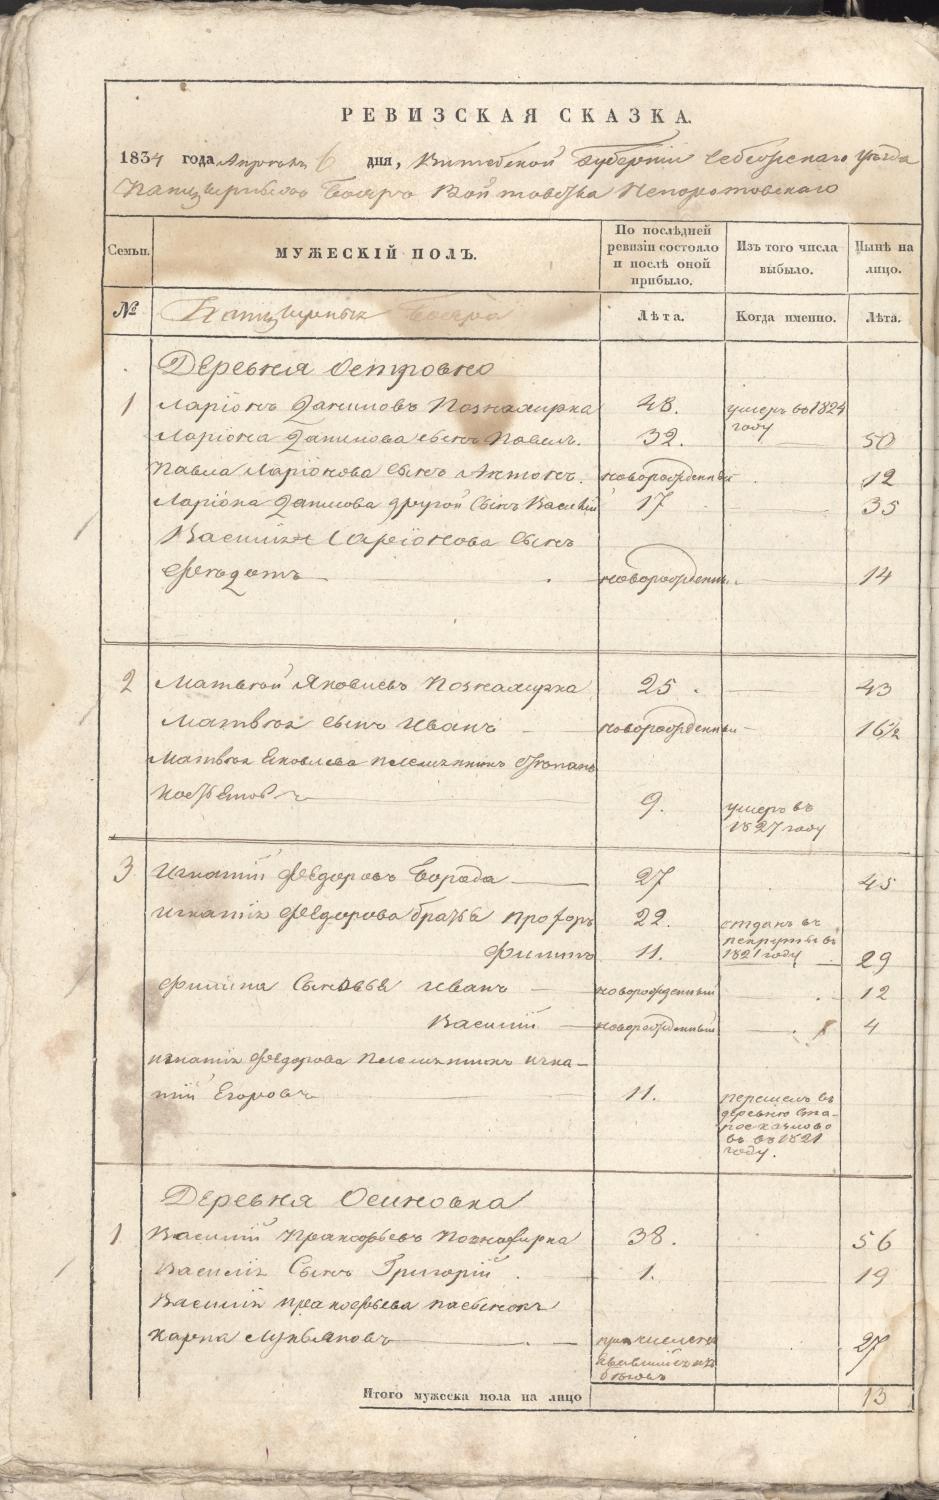 РЕВИЗСКАЯ СКАЗКА.
1834 года Апреля 6 дня, Витебской Губернiи Себежскаго уѣзда
Панцырныхъ Бояръ Войтовства Непоротовскаго
Семьи. МУЖЕСКІЙ ПОЛЪ. По послѣдней ревизіи состояло и послѣ оной прибыло. Изъ того числа выбыло. Нынѣ на лицо.
№ Панцырныя Бояра Лѣта. Когда именно. Лѣта.
Деревня Островно
1 Ларіонъ Даниловъ Познахирка 48. умеръ въ 1824 году
Ларіона Данилова сынъ Павелъ. 32. 50
Павла Ларіонова сынъ Антонъ. новорожденный 12
Ларіона Данилова другой сынъ Василій 17 35
Василія Ларіонова сынъ
Феодотъ новорожденъ. 14
2 Матвей Яковлевъ Познахирка 25. 43
Матвея сынъ Иванъ новорожденный 16 1/2
Матвея Яковлева племянникъ Степанъ
9. умеръ въ 1827 году
3 Игнатій Федоровъ Борода 27 45
Игнатія Федорова братья Профоръ 22. отданъ въ рекруты въ 1821 году
Филипъ 11. 29
Филипа Сыновья Иванъ новорожденный 12
Василій новорожденный 4
Игнатія Федорова племянникъ Игна-
тій Егоровъ 11. перешелъ въ деревню въ 1821 году.
Деревня Осиновка
1 Василій Пракофьевъ Познахирка 38. 56
Василія Сынъ Григорій 1. 19
Василія пракофьева пасынокъ
Карпа Лукьяновъ 27
Итого мужеска пола на лицо 13